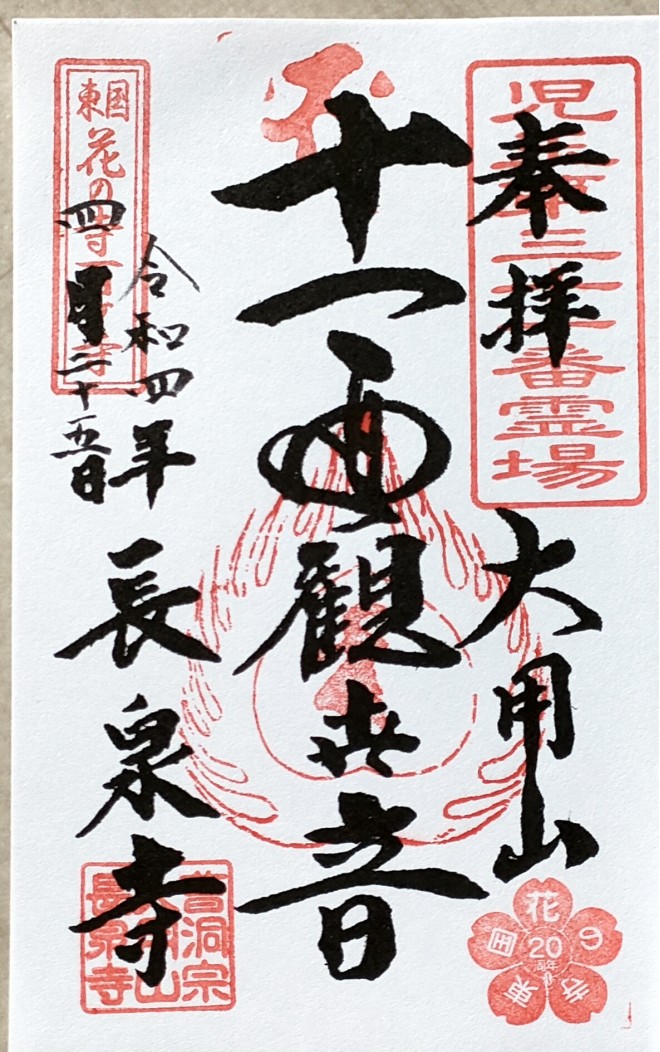 奉拝
児
番霊場
大用山
十一面觀世音
令和四年
四月二十五日
長泉寺
東国花の寺百ヶ寺
曹洞宗
大用山
長泉寺
東国花の寺
20
周年